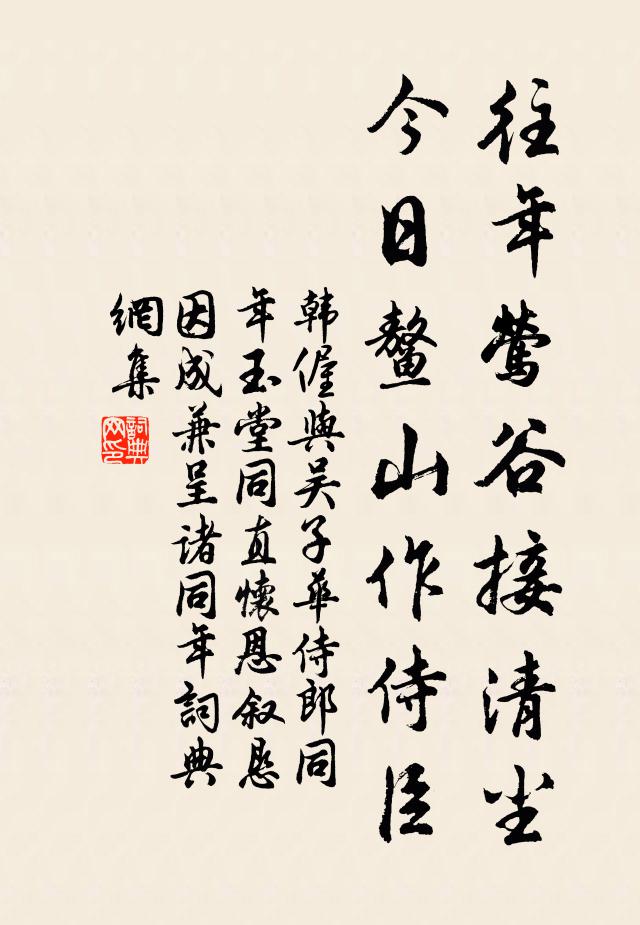 往年莺谷接清尘
今日鳌山作侍臣
韩偓與吴子華侍郎同
年玉堂同直懷恩叙恳
因成兼呈诸同年詞典
網集
詞典
网印